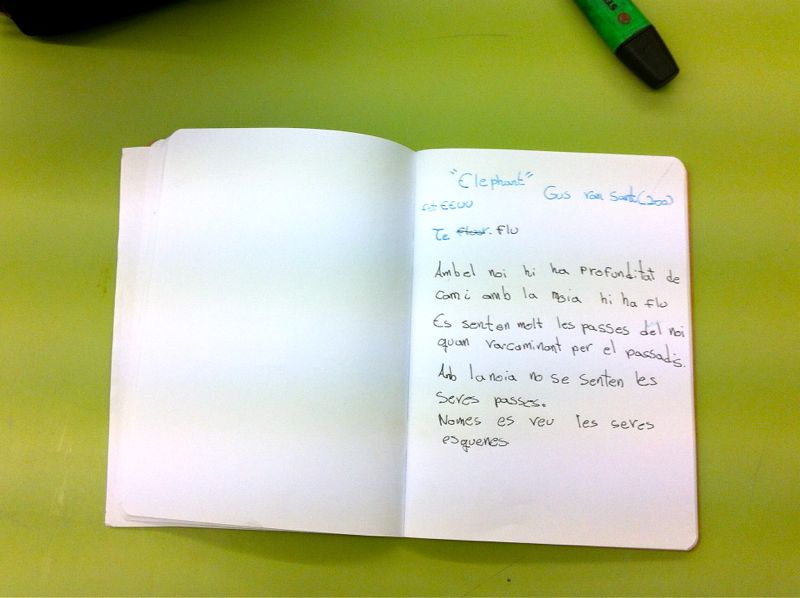 "Elephant"
Gus van Sant (200)
EEUU
Te flu
Ambel noi hi ha profunditat de
cami amb la noia hi ha flu
Es senten molt les passes del noi
quan varcaminant per el passadis.
Amb la noia no se senten les
seves passes.
Nomes es veu les seves
esquenes